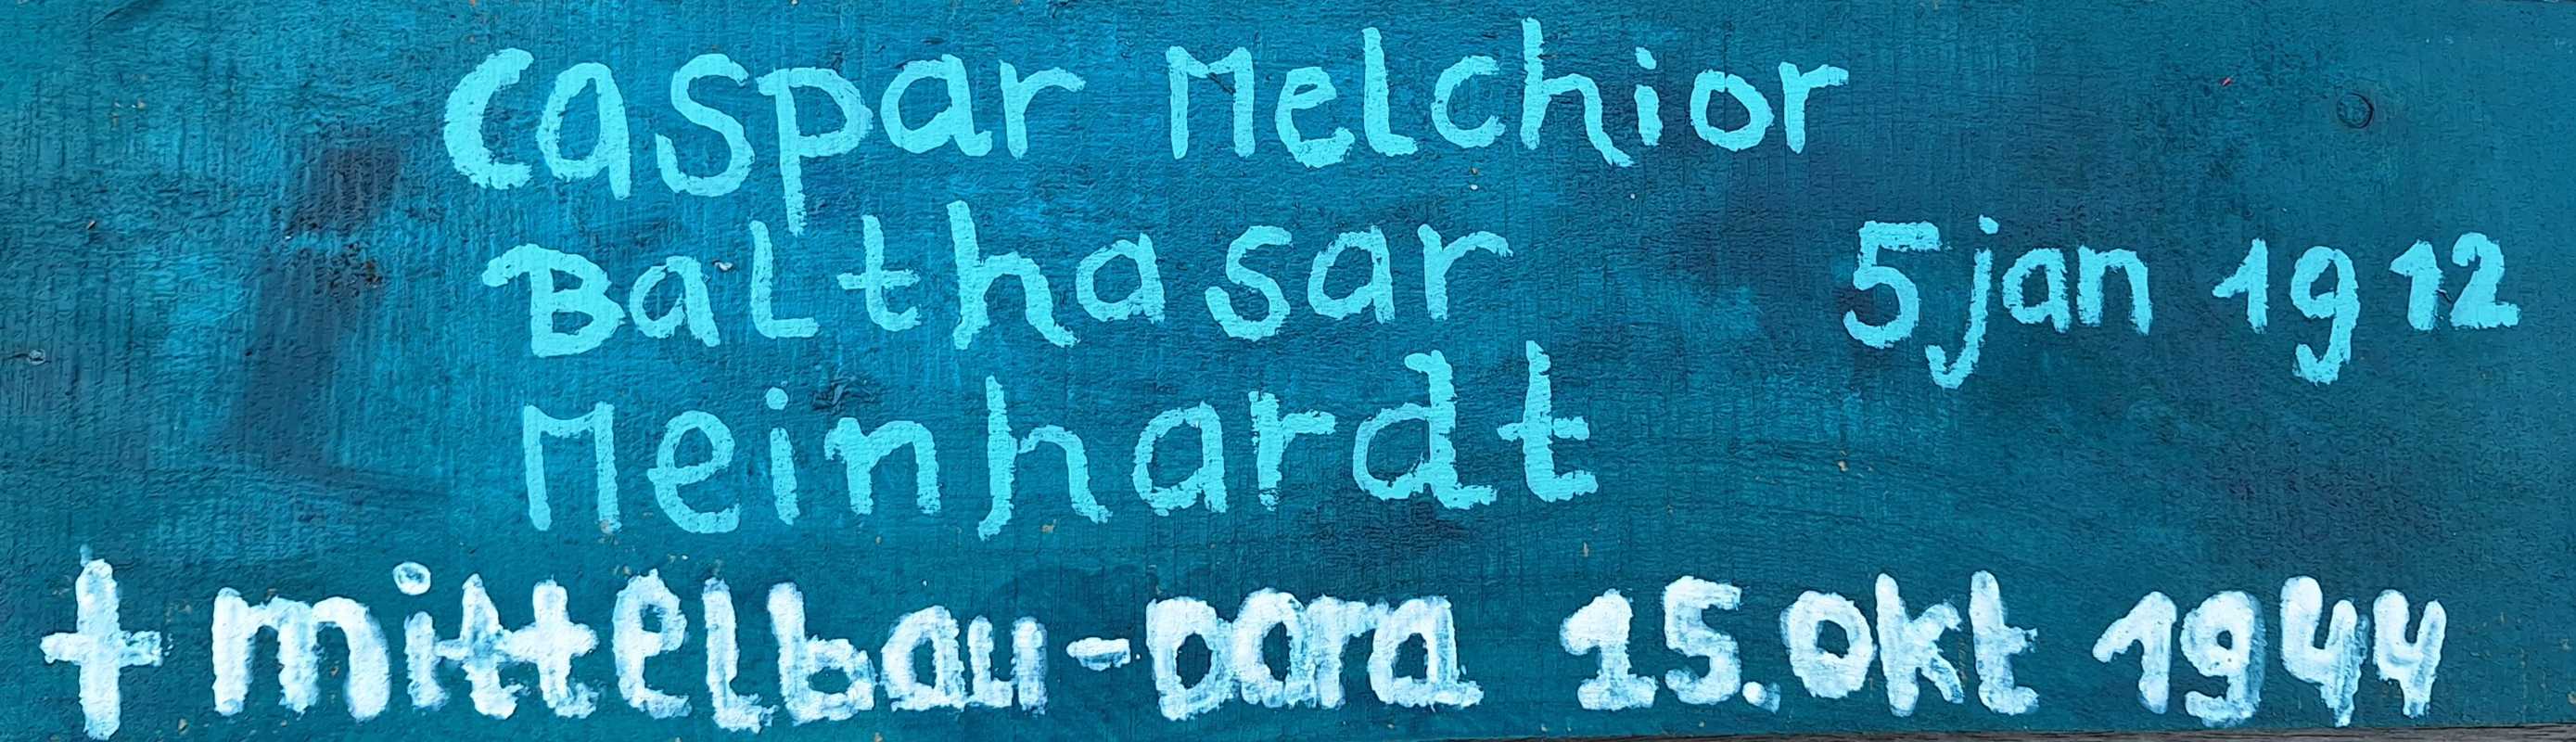 Caspar Melchior
Balthasar 5 jan 1912
Meinhardt
† mittelbau-Dora 15.Okt 1944